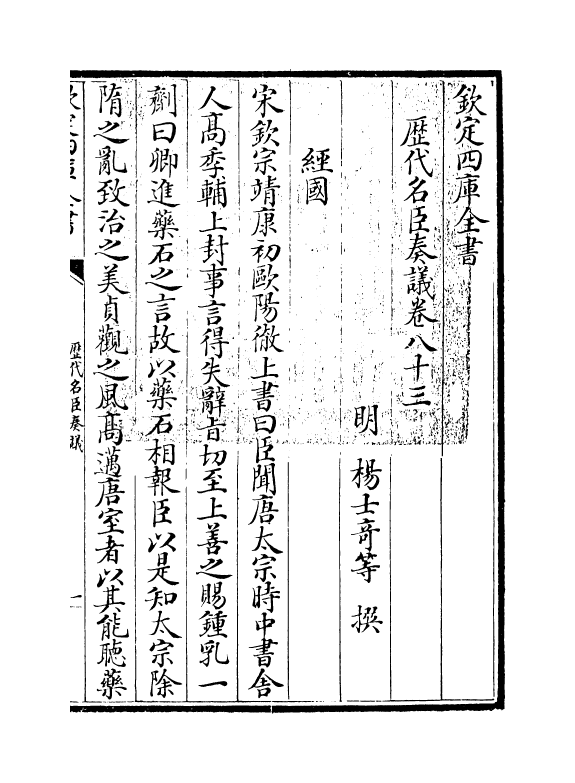 欽定四庫全書
歴代名臣奏議卷八十三
明 楊士竒等 撰
經國
宋欽宗靖康初歐陽徹上書曰臣聞唐太宗時中書舍
人髙季輔上封事言得失辭㫖切至上善之賜鍾乳一
劑曰卿進藥石之言故以藥石相報臣以是知太宗除
隋之亂致治之美貞觀之風髙邁唐室者以其能聽藥
欽定四庫全書
歴代名臣奏議
一